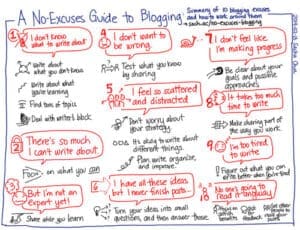 A No-Excuses Guide to Blogging
Summary of 10 blogging excuses
and how to work around them
sach.ac/no-excuses-blogging
1
I don't know
what to write about
Write about
what you don't know
Write about what
you're learning
Find tons of topics
Deal with writer's block
2
There's so much
I can't write about.
Focus on what you can
3
But I'm not an
expert yet!
Share while you learn
4
I don't want to
be wrong.
Test what you
know by sharing
5
I feel so scattered
and distracted
Don't worry about
your strategy
It's okay to write about
different things.
Plan, write, organize,
and improve.
6
I have all these ideas
but I never finish posts...
Turn your ideas into small
questions, and then answer those.
7
I don't feel like
I'm making progress
Be clear about your
goals and possible
approaches
8
It takes too much
time to write
Make sharing part of
the way you work.
9
I'm too tired
to write
Figure out what you can
10
No one's going to
read it anyway